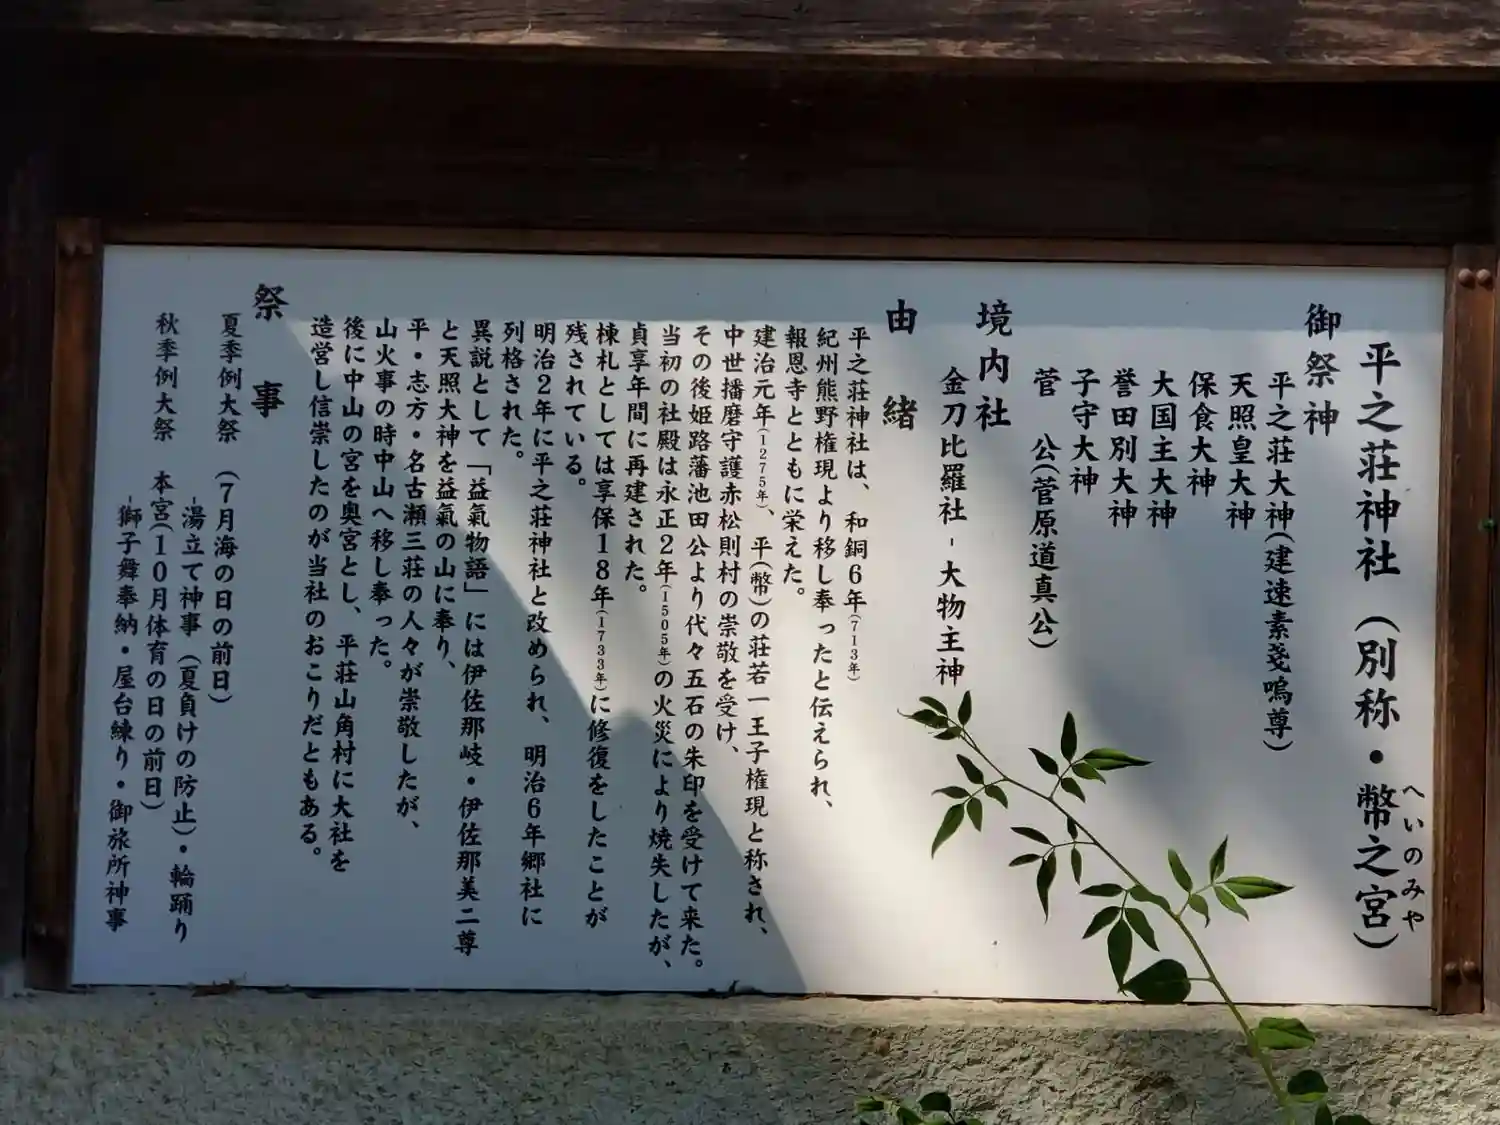 平之荘神社（別称・幣之宮）
へいのみや
御祭神
平之荘大神（建速素戔嗚尊）
天照皇大神
保食大神
大国主大神
誉田別大神
子守大神
菅　公（菅原道真公）
境内社
金刀比羅社-大物主神
由緒
平之荘神社は、和銅６年（713年）
紀州熊野権現より移し奉ったと伝えられ、
報恩寺とともに栄えた。
建治元年（1275年）、平（幣）の荘若一王子権現と称され、
中世播磨守護赤松則村の崇敬を受け、
その後姫路藩池田公より代々五石の朱印を受けて来た。
当初の社殿は永正２年（1505年）の火災により焼失したが、
貞享年間に再建された。
棟札としては享保１８年（1733年）に修復をしたことが
残されている。
明治２年に平之荘神社と改められ、明治６年郷社に
列格された。
異説として「益氣物語」には伊佐那岐・伊佐那美二尊
と天照大神を益氣の山に奉り、
平・志方・名古瀬三荘の人々が崇敬したが、
山火事の時中山へ移し奉った。
後に中山の宮を奥宮とし、平荘山角村に大社を
造営し信崇したのが当社のおこりだともある。
祭事
夏季例大祭　（７月海の日の前日）
-湯立て神事（夏負けの防止）・輪踊り
秋季例大祭　本宮（１０月体育の日の前日）
-獅子舞奉納・屋台練り・御旅所神事